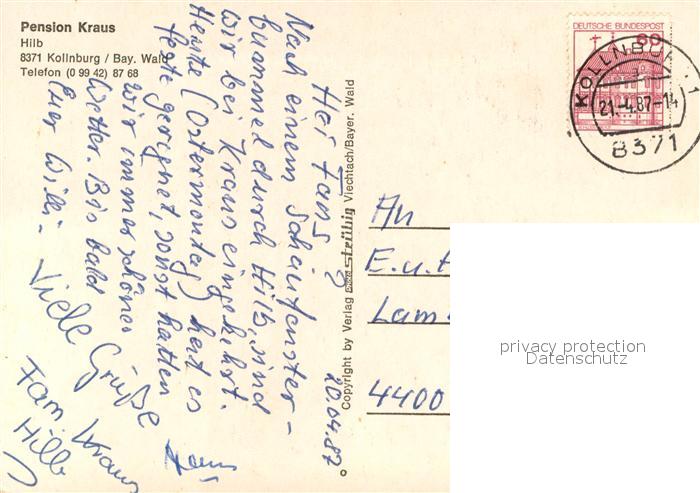 Pension Kraus
Hilb
8371 Kollnburg / Bay. Wald
Telefon (0 99 42) 87 68
Nach einem Schaufenster-
bummel durch Hilb, sind
wir bei Kraus eingekehrt.
Heute (Ostermontag) hat es
feste geregnet, sonst hatten
wir immer schönes
Wetter. Bis bald
Euer Willi
Viele Grüße
Fam. Kraus
Hilb
20.04.87
Copyright by Verlag Viechtach/Bayer. Wald
DEUTSCHE BUNDESPOST
60
KOLLNBURG 1
21.-4.87-14
8371
An
E.u.
Lam
4400
privacy protection
Datenschutz